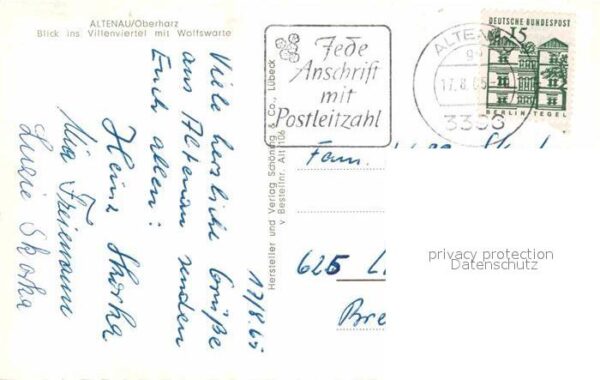 ALTENAU/Oberharz
Blick ins Villenviertel mit Wolfswarte
Viele herzliche Grüße
aus Altenau senden
Euch allen:
Heinz Skorka
Mia Freiemann
Luzie Skorka
17/8.65
Hersteller und Verlag Schöning & Co., Lübeck
Bestellnr. Alt 106
Jede
Anschrift
mit
Postleitzahl
ALTENAU
17.8.65
DEUTSCHE BUNDESPOST
15
BERLIN-TEGEL
Fam.
625 L
Bre
privacy protection
Datenschutz